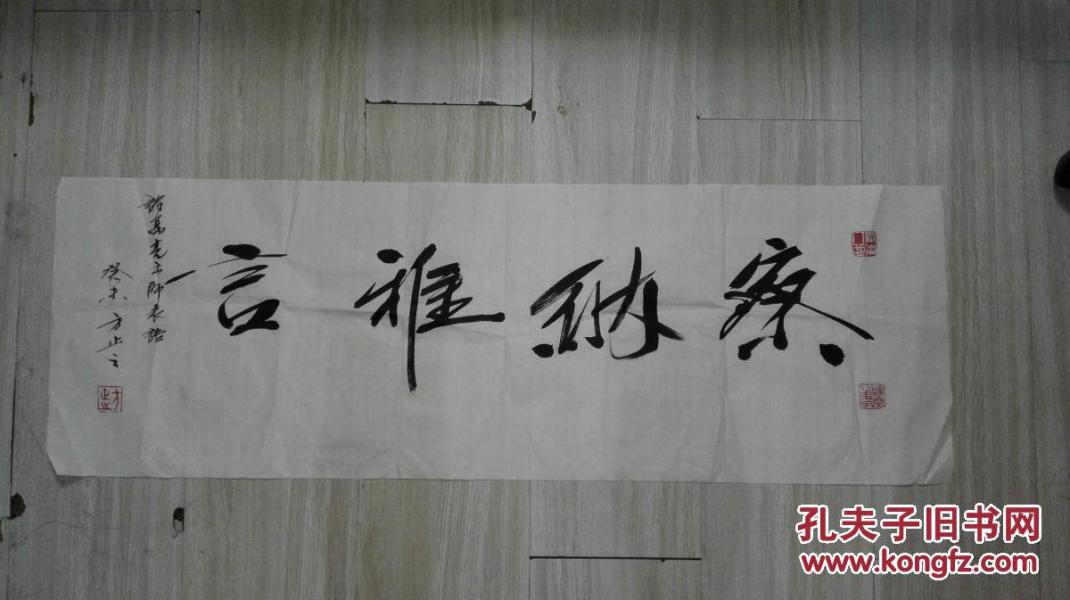 察纳雅言
諸葛亮出師表語
癸未方止之
孔夫子旧书网
www.kongfz.com